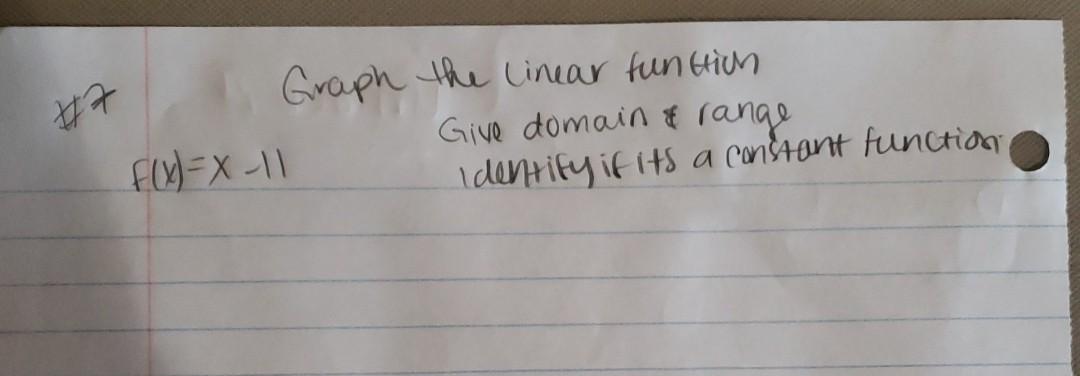 #7
Graph the linear function
Give domain & range
f(x)=x-11
identify if its a constant function